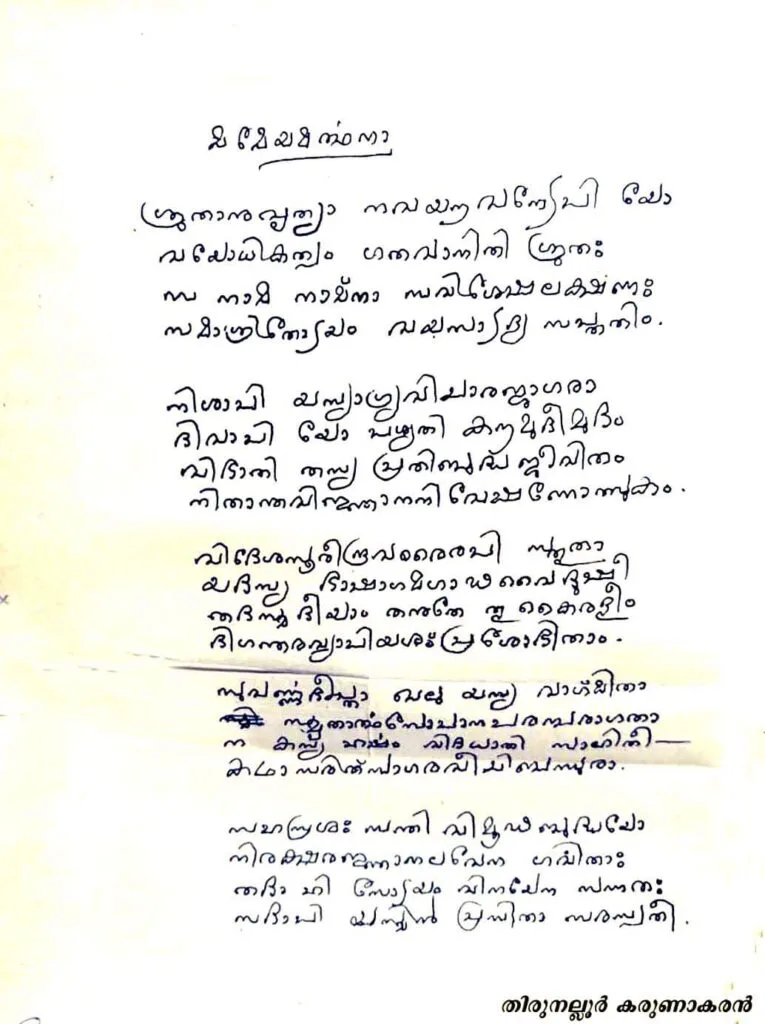 ശ്രുതാനുവൃത്യാ നവയൗവനേഽപി യോ
വയോധികത്വം ഗതവാനിതി ശ്രുതഃ
സ നാമ നാമ്നാ സവിശേഷലക്ഷണഃ
സമാശ്രിതോഽയം വയസാഽദ്യ സപ്തതിം.
നിശാപി യസ്യാഗ്ര്യവിചാരജാഗരാ
ദിവാപി യോ പശ്യതി കൗമുദീമുദം
വിഭാതി തസ്യ പ്രതിബുദ്ധജീവിതം
നിതാന്തവിജ്ഞാനനിവേഷണോത്സുകം.
വിദേശസൂരീന്ദ്രവരൈരപി സ്തുതാ
യദസ്യ ഭാഷാഗമഗാഢവൈദുഷീ
തദസ്മദീയാം തനുതേ തു കൈരളീം
ദിഗന്തരവ്യാപിയശഃപ്രശോഭിതാം.
സുവർണ്ണദീപ്താ ഖലു യസ്യ വാഗ്മിതാ
സോപാനപരമ്പരാഗതാ
ന കസ്യ ഹർഷം വിദധാതി സാഹിതീ—
കഥാസരിത്സാഗരവീചിബന്ധുരാ.
സഹസ്രശഃ സന്തി വിമൂഢബുദ്ധയോ
നിരക്ഷരജ്ഞാനലവേന ഗർവിതാഃ
തദാ ഹി സോഽയം വിനയേന സന്നതഃ
സദാപി യസ്മിൻ പ്രസിതാ സരസ്വതീ.
തിരുനല്ലൂർ കരുണാകരൻ